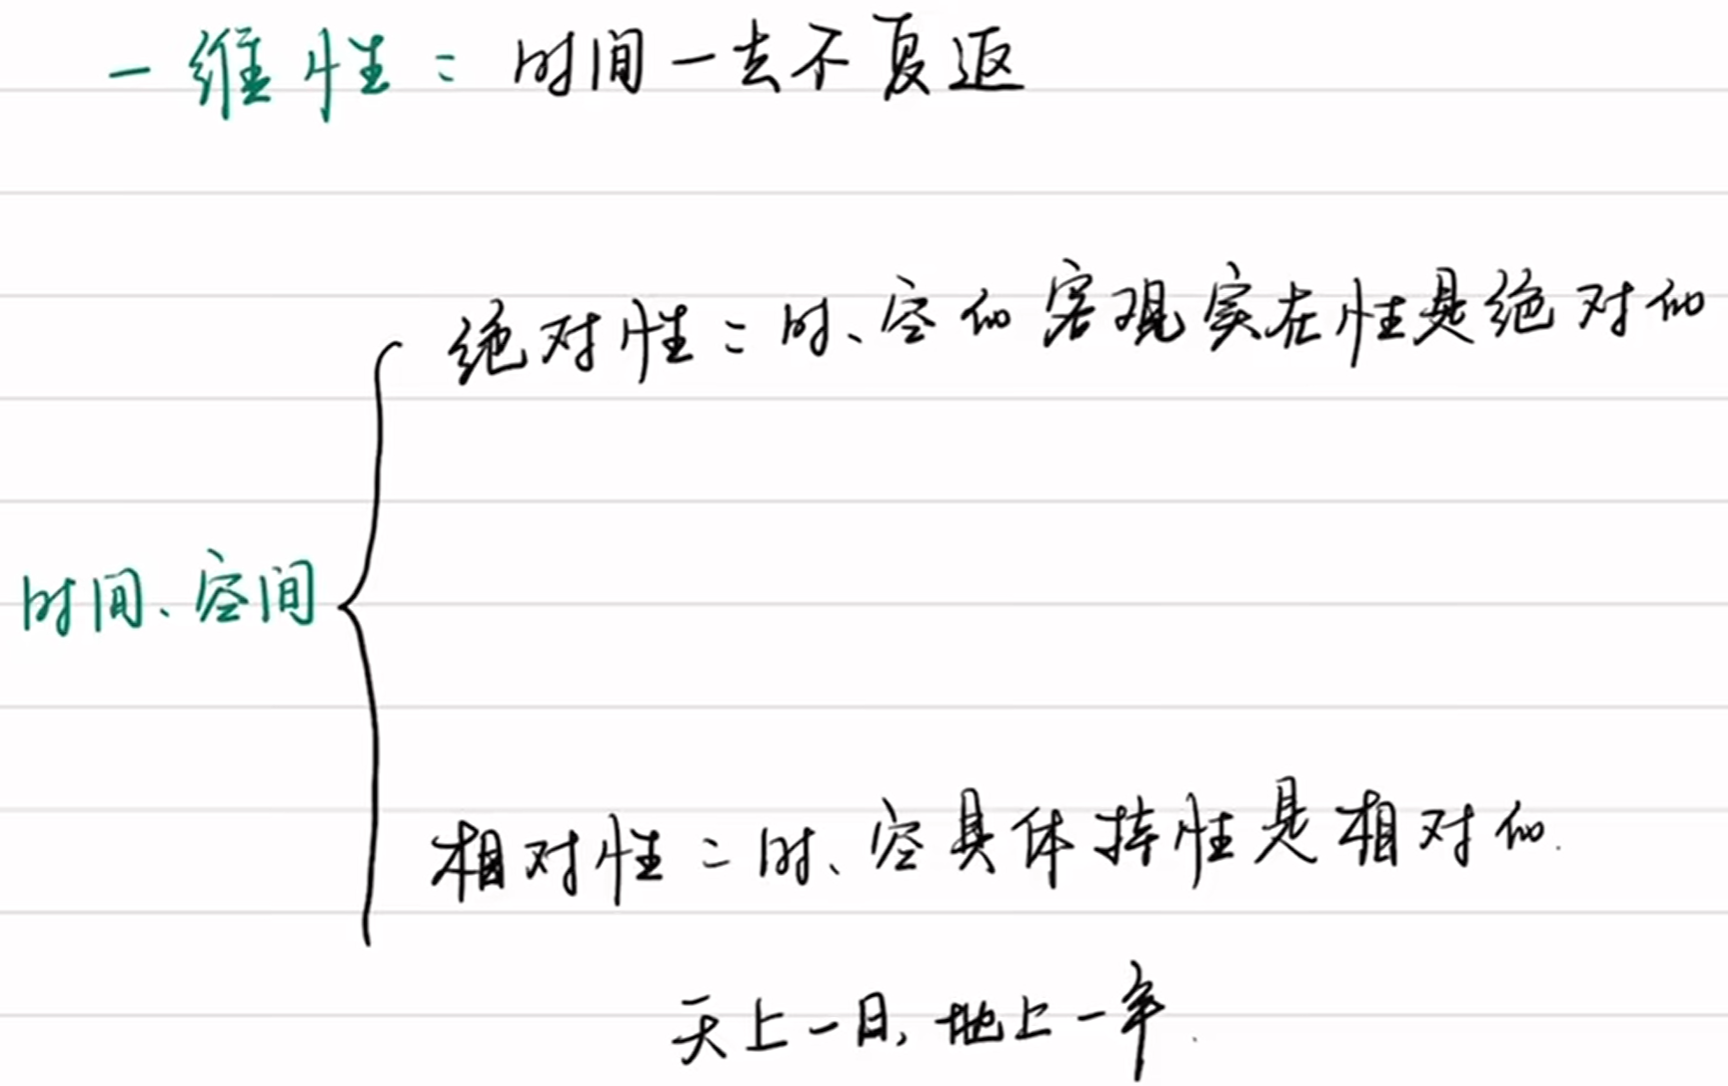 一维性：时间一去不复返
绝对性：时、空的客观实在性是绝对的
时间、空间
相对性：时、空具体特性是相对的.
天上一日，地上一年.